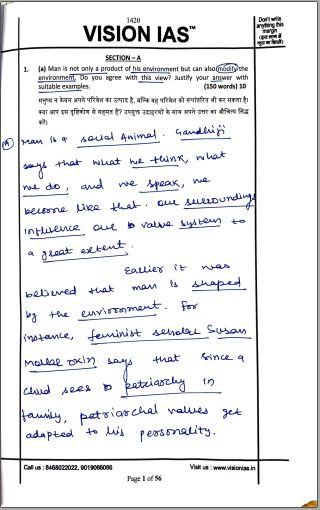 1420
VISION IAS™
Don't write
anything this
margin
(इस भाग में
कुछ ना लिखें)
SECTION – A
1. (a) Man is not only a product of his environment but can also modify the
environment. Do you agree with this view? Justify your answer with
suitable examples. (150 words) 10
मनुष्य न केवल अपने परिवेश का उत्पाद है, बल्कि वह परिवेश को रूपांतरित भी कर सकता है।
क्या आप इस दृष्टिकोण से सहमत हैं? उपयुक्त उदाहरणों के साथ अपने उत्तर का औचित्य सिद्ध
करें।
Man is a social Animal. Gandhiji
says that what we think, what
we do, and we speak, we
become like that. Our surroundings
influence our value system to
a great extent.
Earlier it was
believed that man is shaped
by the environment. For
instance, feminist scholar Susan
Moller Okin says that since a
child sees patriarchy in
family, patriarchal values get
adapted to his personality.
Call us : 8468022022, 9019066066 Visit us : www.visionias.in
Page 1 of 56